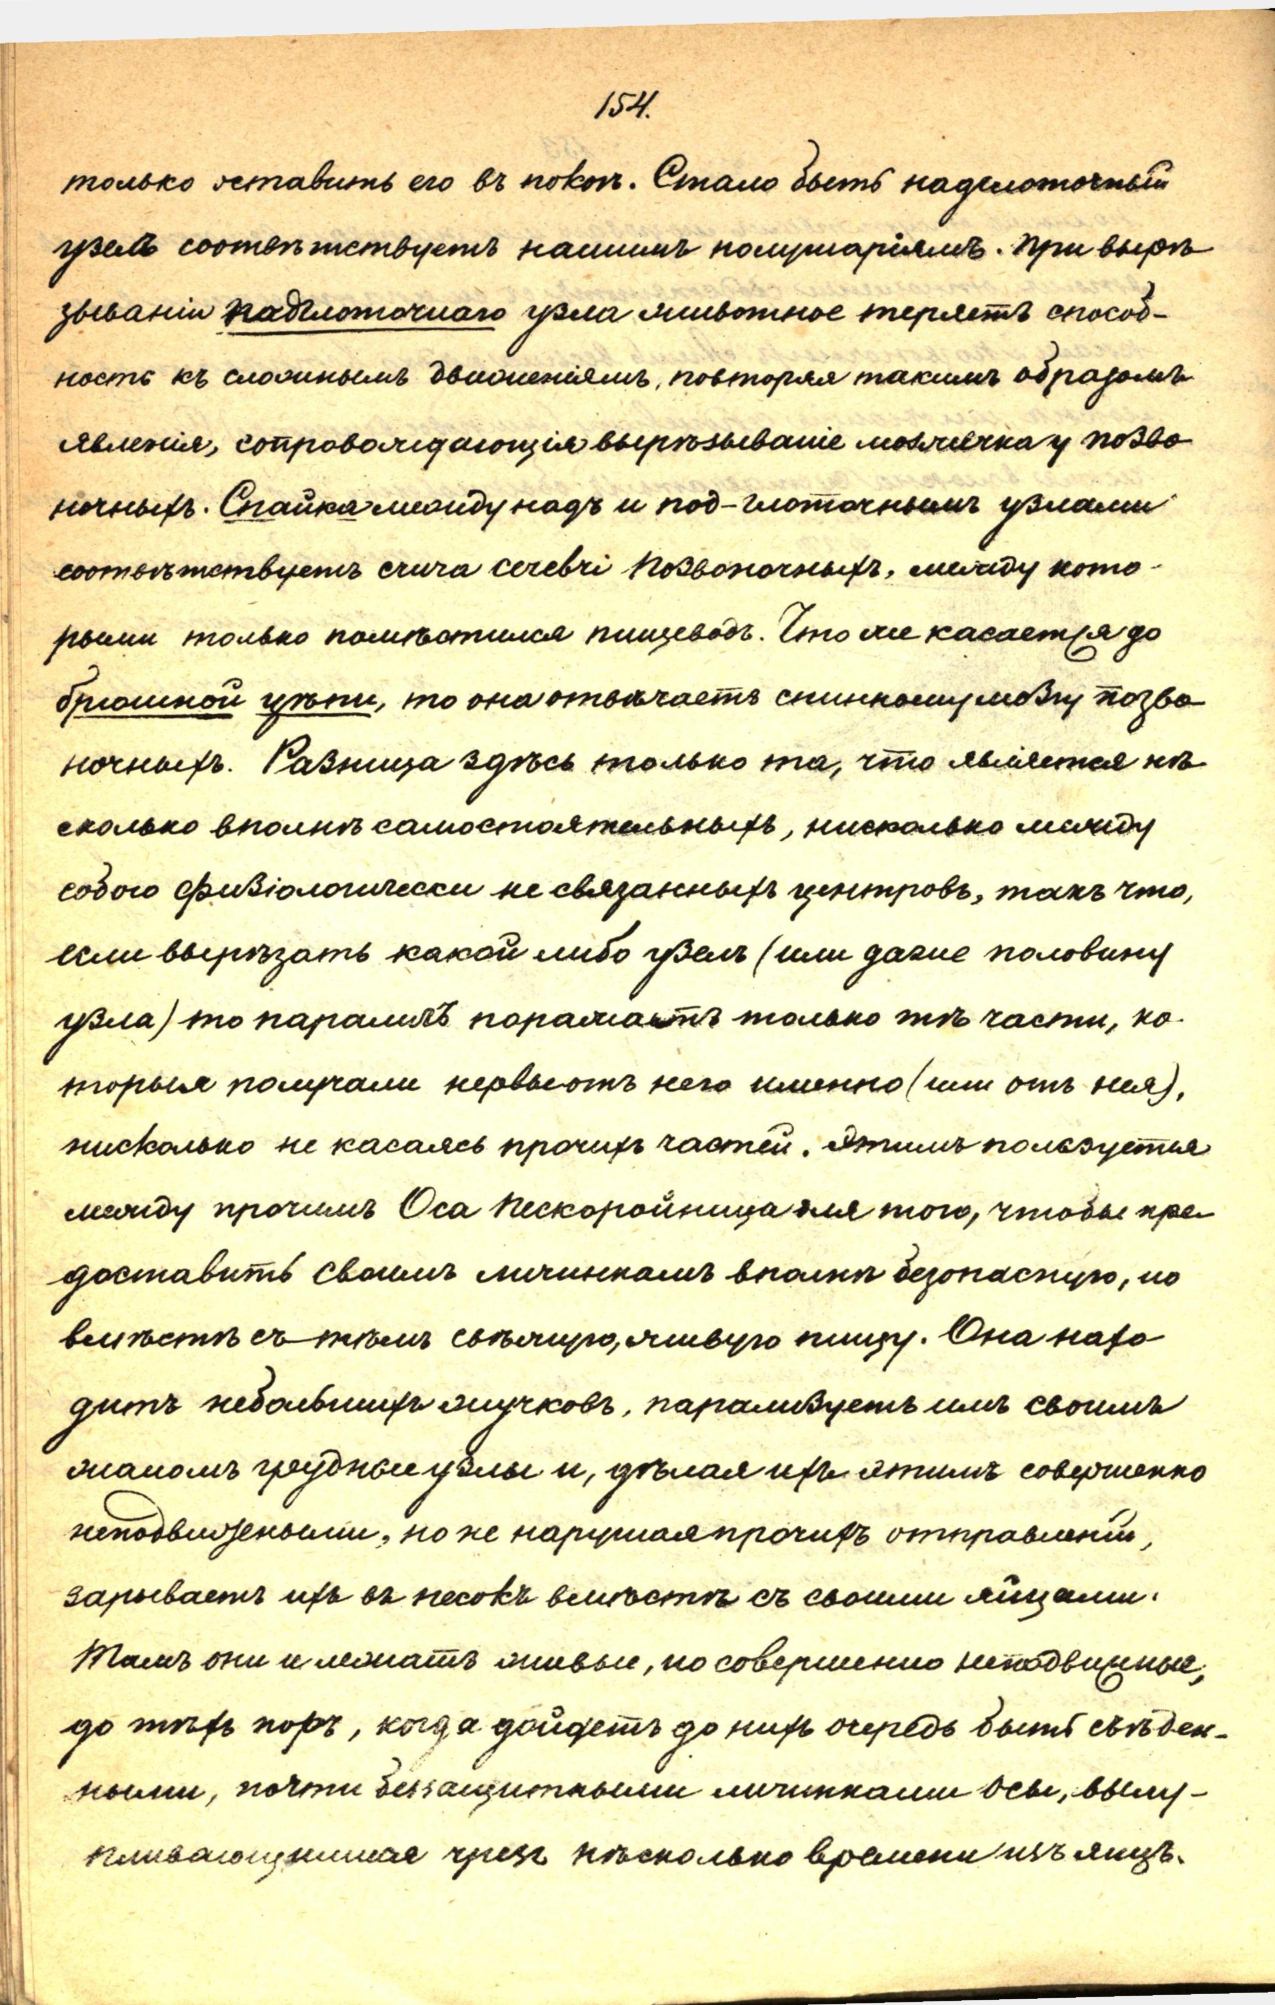 154.
только оставить его въ покоѣ. Стало быть надглоточный
узелъ соотвѣтствуетъ нашимъ полушаріямъ. При вырѣ
зываніи надглоточнаго узла животное теряетъ способ-
ность къ сложнымъ движеніямъ, повторяя такимъ образомъ
явленія, сопровождающія вырѣзываніе мозжечка у позво
ночныхъ. Спайка между надъ и под-глоточнымъ узлами
соотвѣтствуетъ crura cerebri позвоночныхъ, между кото-
рыми только помѣстился пищеводъ. Что же касается до
брюшной цѣпи, то она отвѣчаетъ спинному мозгу позво
ночныхъ. Разница здѣсь только та, что является нѣ
сколько вполнѣ самостоятельныхъ, нисколько между
собою физіологически не связанныхъ центровъ, такъ что,
если вырѣзать какой либо узелъ (или даже половину
узла) то параличъ поражаетъ только тѣ части, ко-
торыя получали нервы отъ него именно (или отъ нея),
нисколько не касаясь прочихъ частей. Этимъ пользуется
между прочимъ Оса Пескоройница для того, чтобы пре
доставить своимъ личинкамъ вполнѣ безопасную, но
вмѣстѣ съ тѣмъ свѣжую, живую пищу. Она нахо
дитъ небольшихъ жучковъ, парализуетъ имъ своимъ
жаломъ грудные узлы и, дѣлая ихъ этимъ совершенно
неподвижными, но не нарушая прочихъ отправленій,
зарываетъ ихъ въ песокъ вмѣстѣ съ своими яйцами.
Тамъ они и лежатъ живые, но совершенно неподвижные,
до тѣхъ поръ, когда дойдетъ до нихъ очередь быть съѣден-
ными, почти беззащитными личинками осы, вылу-
пливающимися чрезъ нѣсколько времени изъ яицъ.